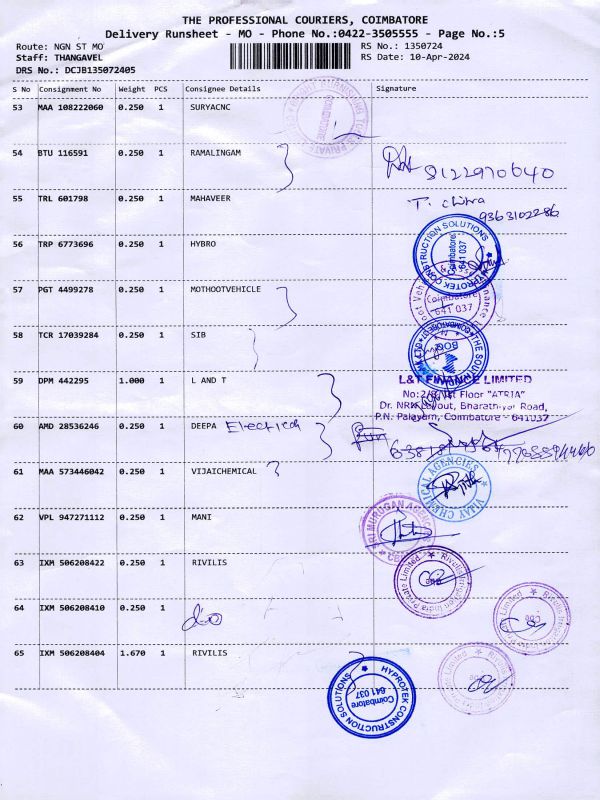 THE PROFESSIONAL COURIERS, COIMBATORE
Delivery Runsheet - MO - Phone No.:0422-3505555 - Page No.:5
Route: NGN ST MO RS No.: 1350724
Staff: THANGAVEL RS Date: 10-Apr-2024
DRS No.: DCJB135072405
S No Consignment No Weight PCS Consignee Details Signature
53 MAA 108222060 0.250 1 SURYACNC
54 BTU 116591 0.250 1 RAMALINGAM
8122970640
55 TRL 601798 0.250 1 MAHAVEER T. chitra
9363102286
56 TRP 6773696 0.250 1 HYBRO
HYPROTEK CONSTRUCTION SOLUTIONS
Coimbatore
641 037
57 PGT 4499278 0.250 1 MOTHOOTVEHICLE
Coimbatore
641 037
58 TCR 17039284 0.250 1 SIB
59 DPM 442295 1.000 1 L AND T
L&T FINANCE LIMITED
Floor "ATRIA"
Dr. NRN Layout, Bharathiyar Road,
P.N. Palayam, Coimbatore - 641037
60 AMD 28536246 0.250 1 DEEPA
61 MAA 573446042 0.250 1 VIJAICHEMICAL
VIJAI CHEMICAL AGENCIES
62 VPL 947271112 0.250 1 MANI
SRI MURUGAN AGENCIES
63 IXM 506208422 0.250 1 RIVILIS
Rivulis Irrigation India Private Limited
64 IXM 506208410 0.250 1 do
65 IXM 506208404 1.670 1 RIVILIS
HYPROTEK CONSTRUCTION SOLUTIONS
Coimbatore
641 037